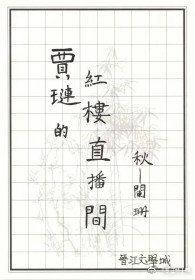 賈璉的
紅樓直播間
秋一闌珊
晉江文學城